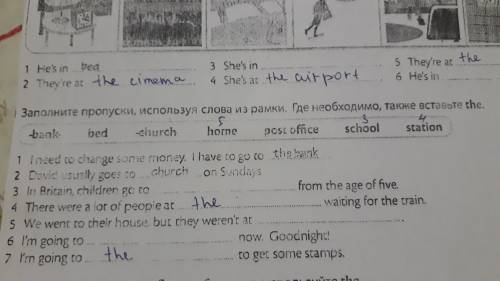 1 He's in bed 3 She's in 5 They're at the
2 They're at the cinema 4 She's at the airport 6 He's in
Заполните пропуски, используя слова из рамки. Где необходимо, также вставьте the.
5 3 4
bank bed church home post office school station
1 I need to change some money. I have to go to the bank
2 David usually goes to church on Sundays
3 In Britain, children go to from the age of five.
4 There were a lot of people at the waiting for the train.
5 We went to their house, but they weren't at
6 I'm going to now. Goodnight!
7 I'm going to the to get some stamps.